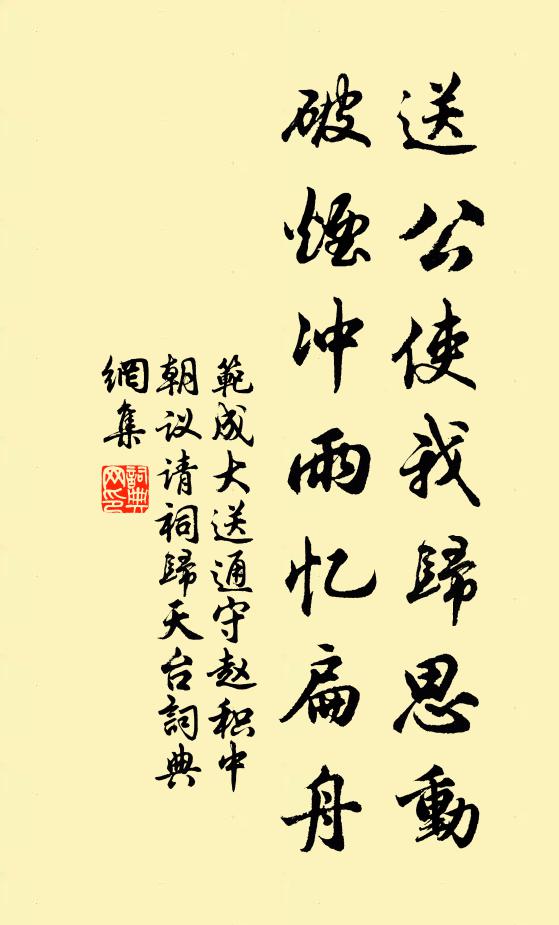 送公使我歸思動
破煙冲雨忆扁舟
範成大送通守赵积中
朝议请祠歸天台詞典
網集
詞典
网印